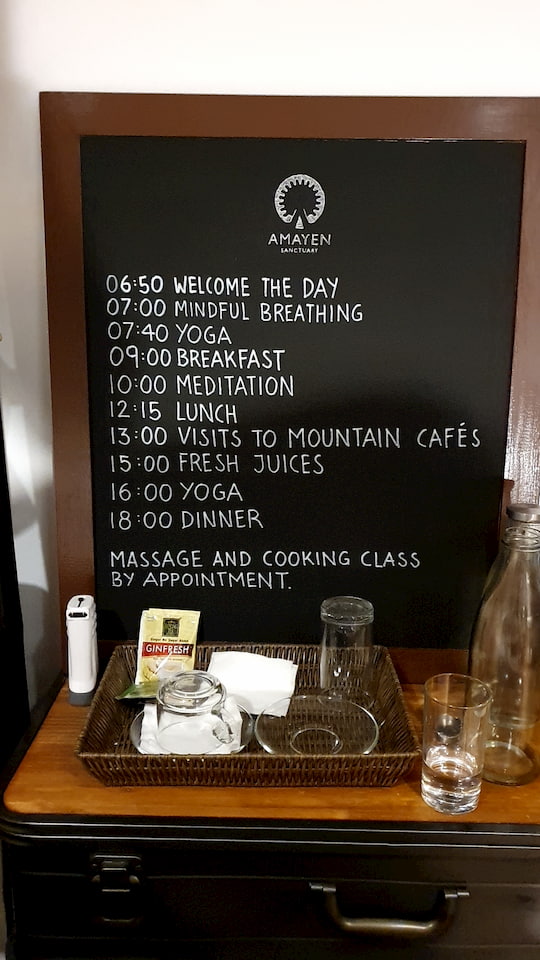 AMAYEN
SANCTUARY
06:50 WELCOME THE DAY
07:00 MINDFUL BREATHING
07:40 YOGA
09:00 BREAKFAST
10:00 MEDITATION
12:15 LUNCH
13:00 VISITS TO MOUNTAIN CAFÉS
15:00 FRESH JUICES
16:00 YOGA
18:00 DINNER
MASSAGE AND COOKING CLASS
BY APPOINTMENT.
GINFRESH